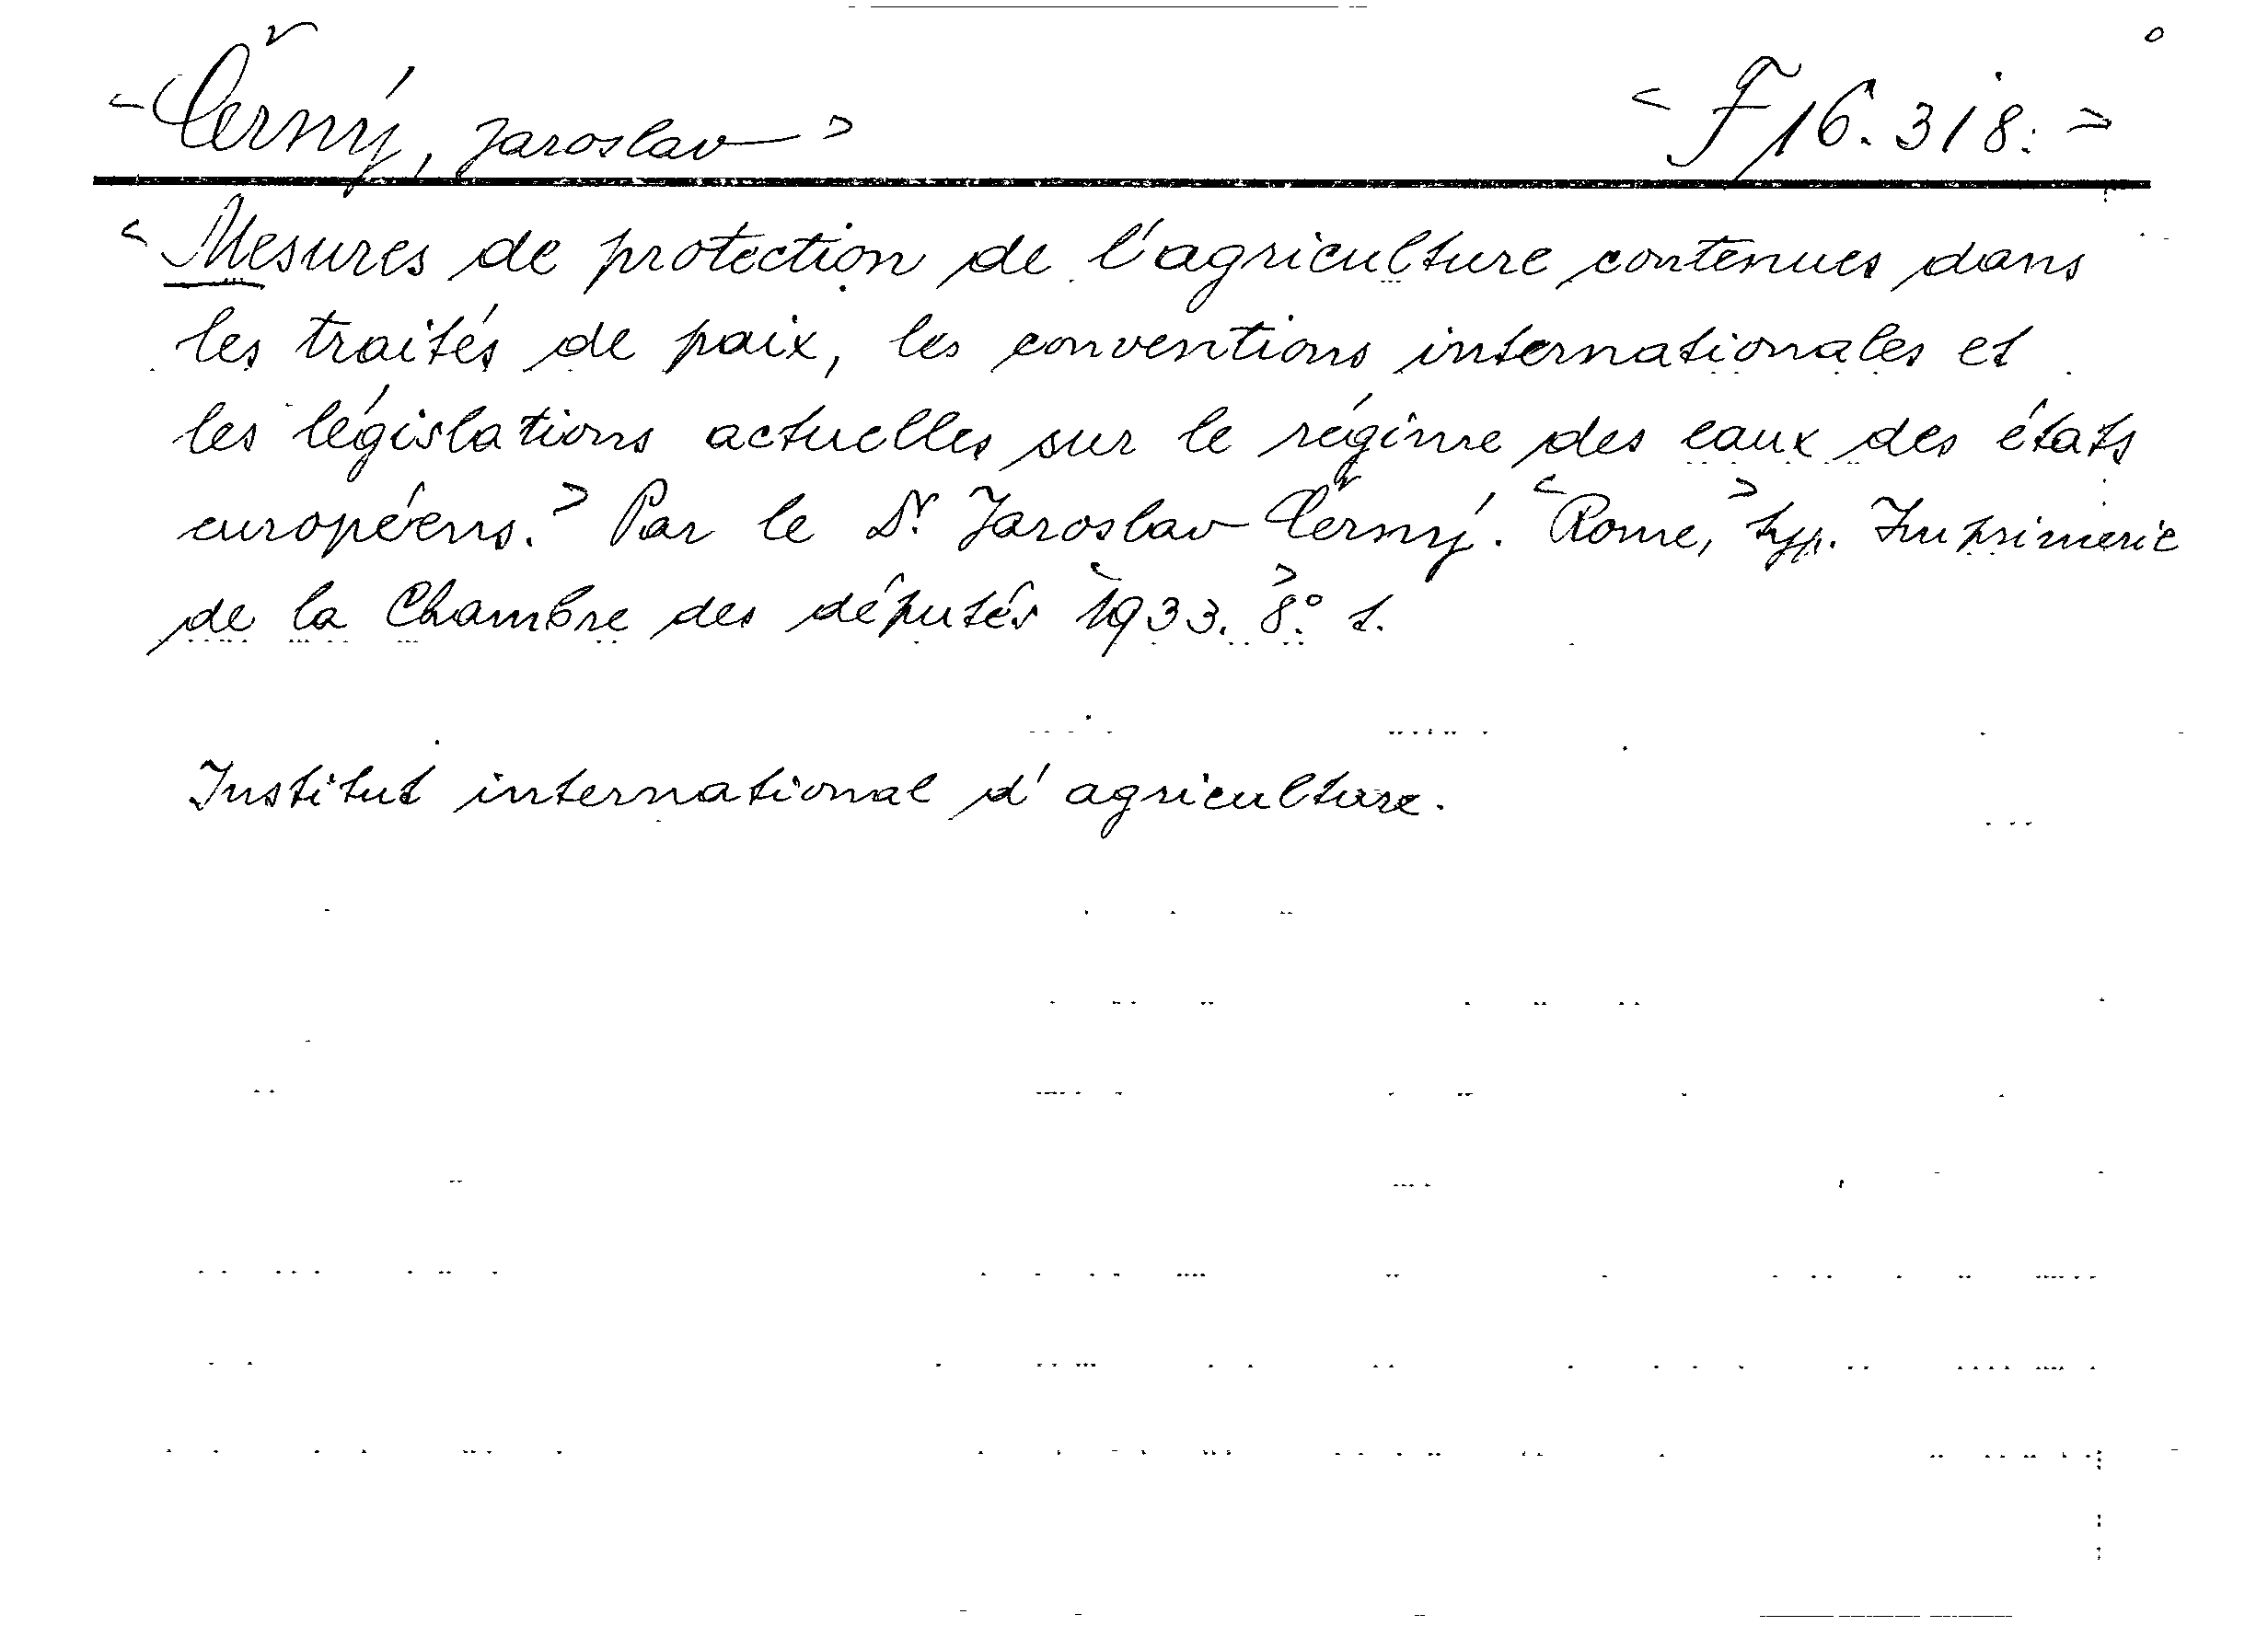 < Černý, Jaroslav > < F 16.318. >
< Mesures de protection de l'agriculture contenues dans
les traités de paix, les conventions internationales et
les législations actuelles sur le régime des eaux des états
européens. > Par le Dr. Jaroslav Černý. < Rome, > typ. Imprimerie
de la Chambre des députés < 1933. > 8° 1.
Institut international d'agriculture.